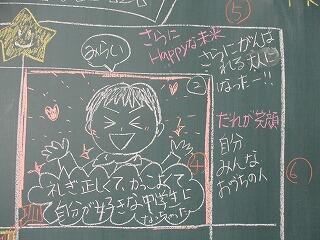 みらい
さらに
Happyな未来
さらにがんば
れる大人に
なったー!!
⑤
②
だれが笑顔
自分
みんな
おうちの人
④
⑥
礼ぎ正しくて、かっこよくて
自分が好きな中学生に
なっちゃった